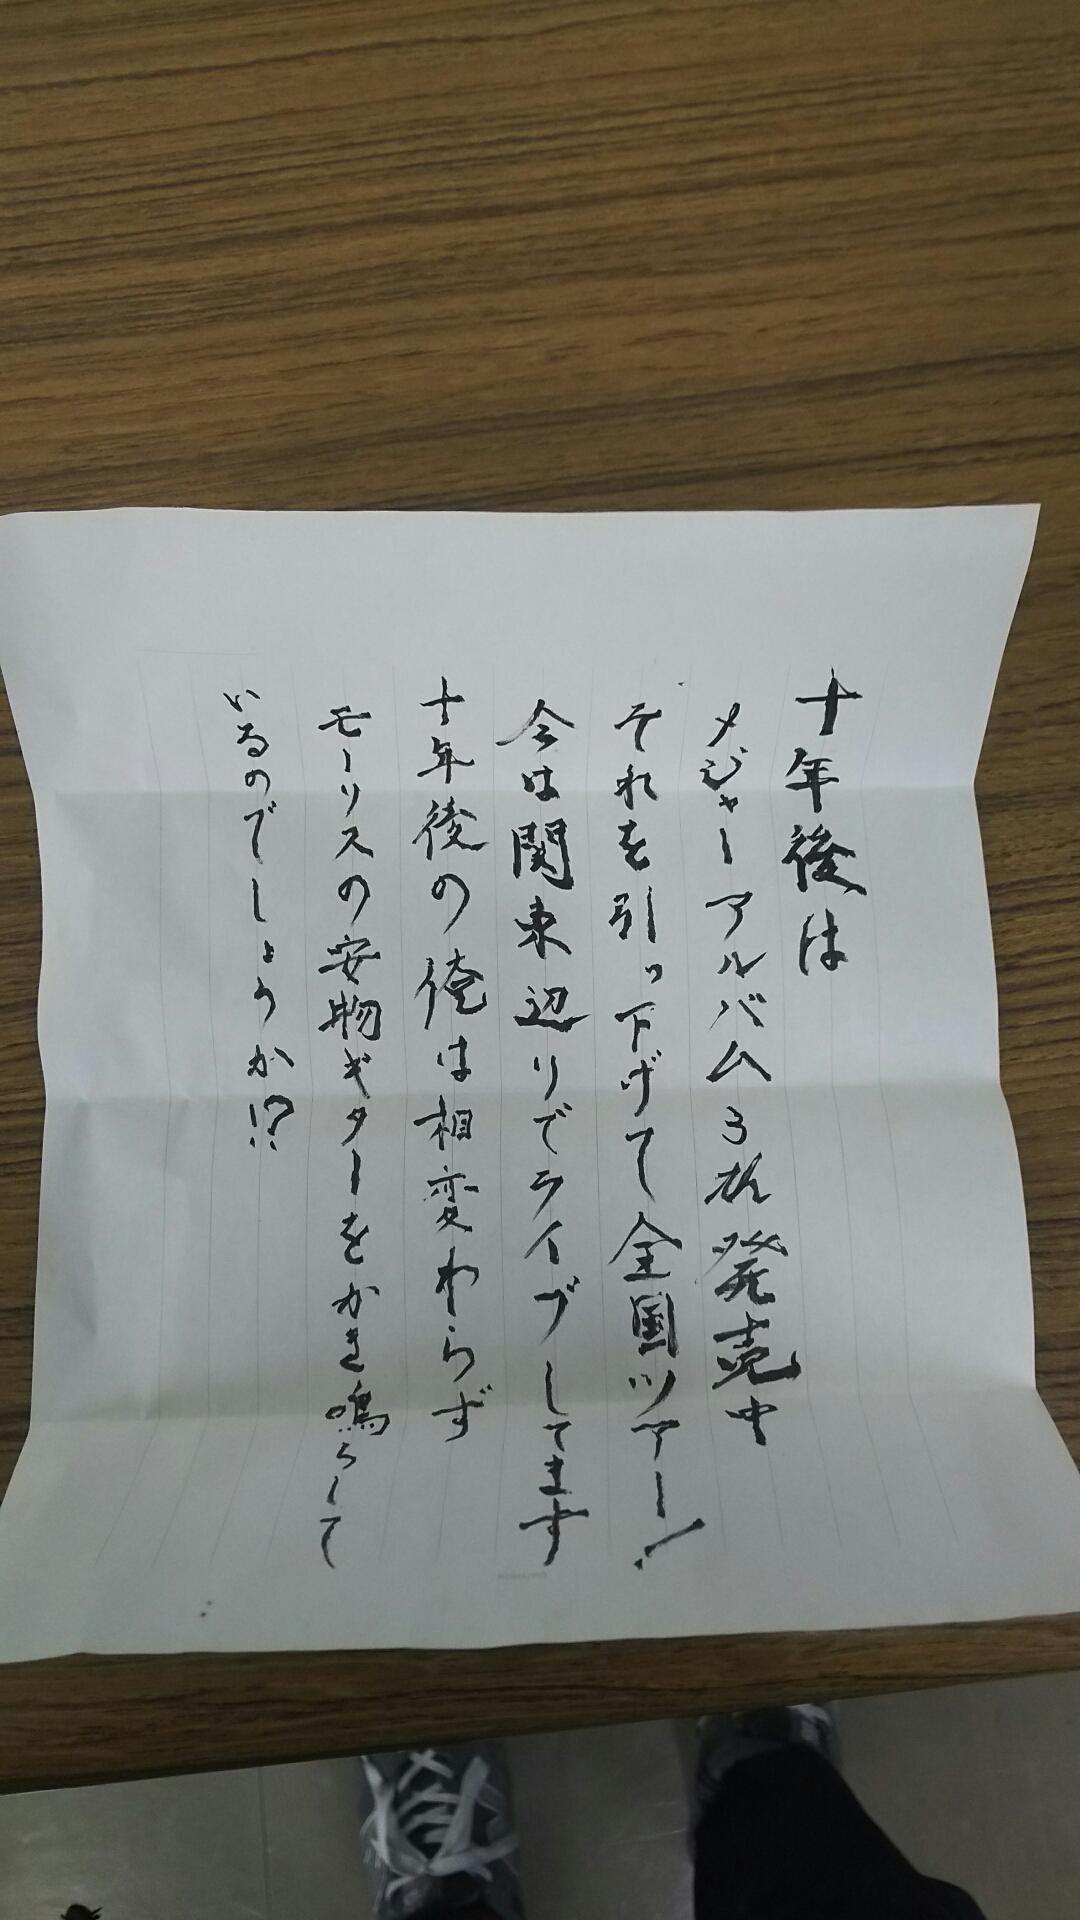 十年後は
メジャーアルバム3枚発売中
それを引っ下げて全国ツアー!
今は関東辺りでライブしてます
十年後の俺は相変わらず
モーリスの安物ギターをかき鳴らして
いるのでしょうか!?